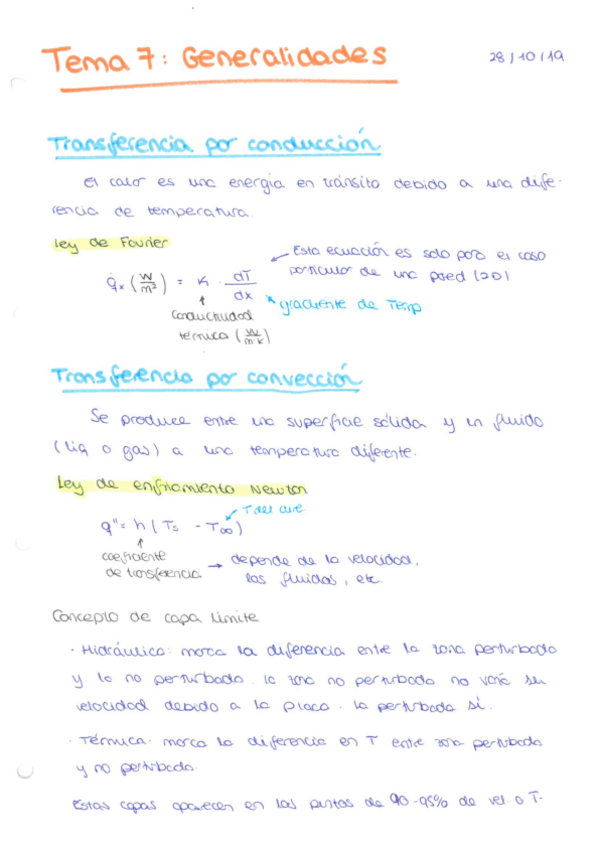 Tema 7: Generalidades
28/10/19
Transferencia por conducción
El calor es una energía en tránsito debido a una dife-
rencia de temperatura.
Ley de Fourier
q̇x (W/m²) = K · dT/dx
Esta ecuación es solo para el caso
particular de una pared (2D)
gradiente de Temp
conductividad
térmica (W/m K)
Transferencia por convección
Se produce entre una superficie sólida y un fluido
(liq o gas) a una temperatura diferente.
Ley de enfriamiento Newton
q" = h (Ts - T∞)
T del aire
coeficiente
de transferencia
depende de la velocidad,
los fluidos, etc
Concepto de capa límite
· Hidráulica: marca la diferencia entre la zona perturbada
y la no perturbada. la zona no perturbada no varía su
velocidad debido a la placa. la perturbada sí.
· Térmica: marca la diferencia en T entre zona perturbada
y no perturbada.
Estas capas aparecen en los puntos de 90-95% de vel. o T.